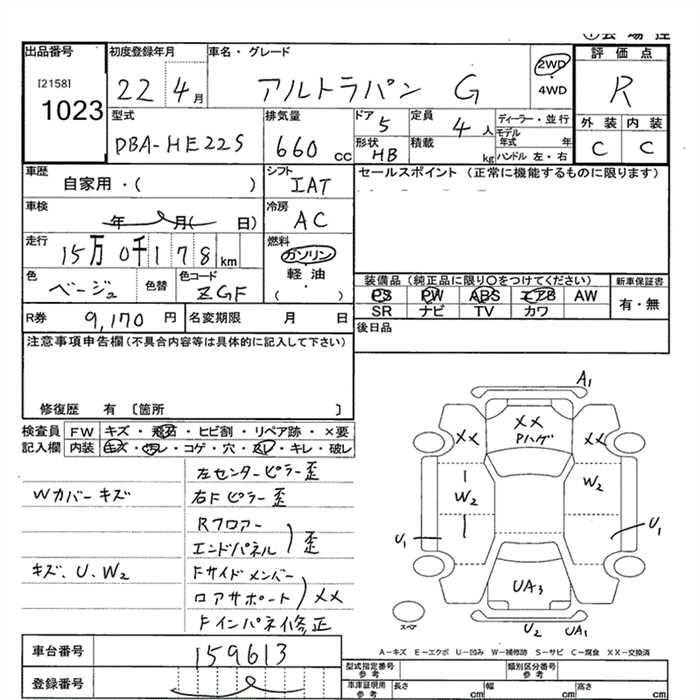 出品番号
[2158]
1023
初度登録年月
22 4月
車名・グレード
アルトラパン G
2WD
4WD
評価点
R
外装 内装
C C
型式
DBA-HE22S
排気量
660 cc
ドア 5
形状 HB
定員 4 人
積載 kg
ディーラー・並行
モデル
年式 年
ハンドル 左・右
車歴
自家用・( )
シフト
IAT
セールスポイント (正常に機能するものに限ります)
車検
年 月( 日)
冷房
AC
走行
15万0千178km
燃料
ガソリン
軽油
( )
色
ベージュ
色替
色コード
ZGF
装備品 (純正品に限り○をつけてください)
PS PW ABS エアB AW
SR ナビ TV カワ
新車保証書
有・無
R券 9,170 円
名変期限 月 日
後日品
注意事項申告欄(不具合内容等は具体的に記入して下さい)
修復歴 有 〔箇所 〕
検査員 FW キズ・飛石・ヒビ割・リペア跡・×要
記入欄 内装 キズ・汚レ・コゲ・穴・スレ・キレ・破レ
左センターピラー歪
Wカバーキズ
右Fピラー歪
Rフロアー
エンドパネル ) 歪
キズ、U、W2
Fサイドメンバー
ロアサポート ) XX
Fインパネ修正
A1
XX
Pハゲ
XX
XX
W2
W2
U1
U1
UA3
U2 UA1
スペア
A-キズ E-エクボ U-凹み W-補修跡 S-サビ C-腐食 XX-交換済
車台番号
159613
登録番号
型式指定番号
参考
類別区分番号
参考
車庫証明用
参考
長さ cm
幅 cm
高さ cm